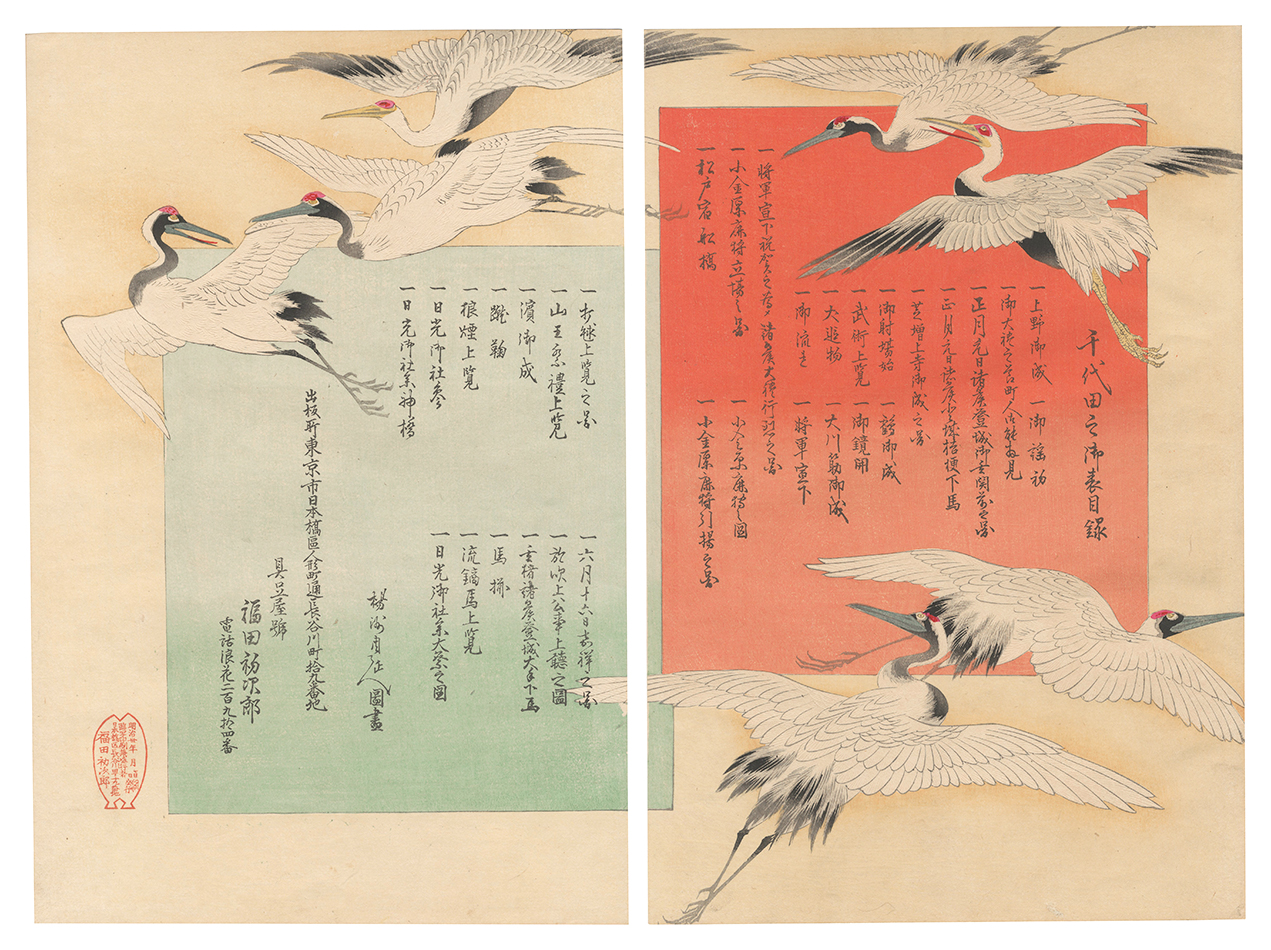 千代田之御表目録
一 上野御成
一 御謡初
一 御大礼之節町人御能拝見
一 正月元日諸侯登城御玄関前之図
一 正月元日諸侯登城桔梗下馬
一 芝増上寺御成之図
一 御射場始
一 鶴御成
一 武術上覧
一 御鏡開
一 犬追物
一 大川筋御成
一 御流れ
一 将軍宣下
一 将軍宣下祝賀之為メ諸侯大礼行列之図
一 小金原鹿狩立場之図
一 小金原鹿狩之図
一 松戸宿船橋
一 小金原鹿狩引揚之図
一 打毬上覧之図
一 六月十六日嘉祥之図
一 山王祭禮上覧
一 於吹上公事上聴之図
一 濱御成
一 玄猪諸侯登城大手下馬
一 蹴鞠
一 馬揃
一 狼煙上覧
一 流鏑馬上覧
一 日光御社参
一 日光御社参大祭之図
一 日光御社参神橋
楊洲周延人圖畫
出板所東京市日本橋區人形町通長谷川町拾九番地
具足屋號
福田初次郎
電話浪花二百九拾四番
福田初次郎